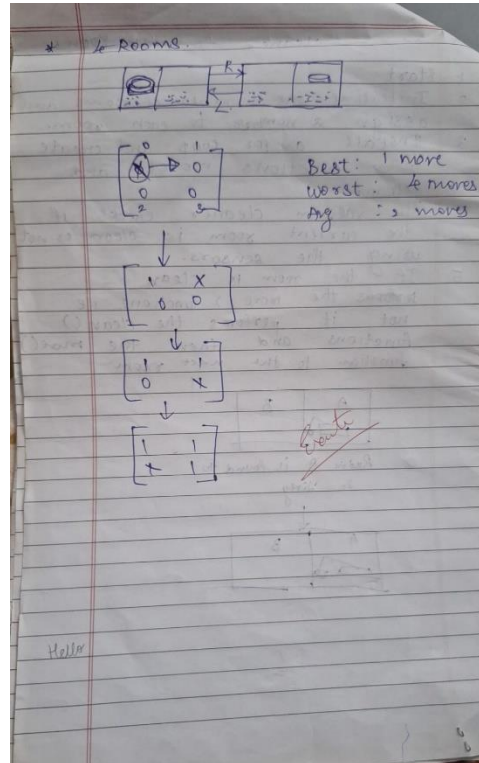 * 4 Rooms.
R
L
0 1
X 0
0 0
2 3
Best: 1 move
Worst: 4 moves
Avg : 2 moves
1 X
0 0
1 1
0 X
1 1
X 1
Hello